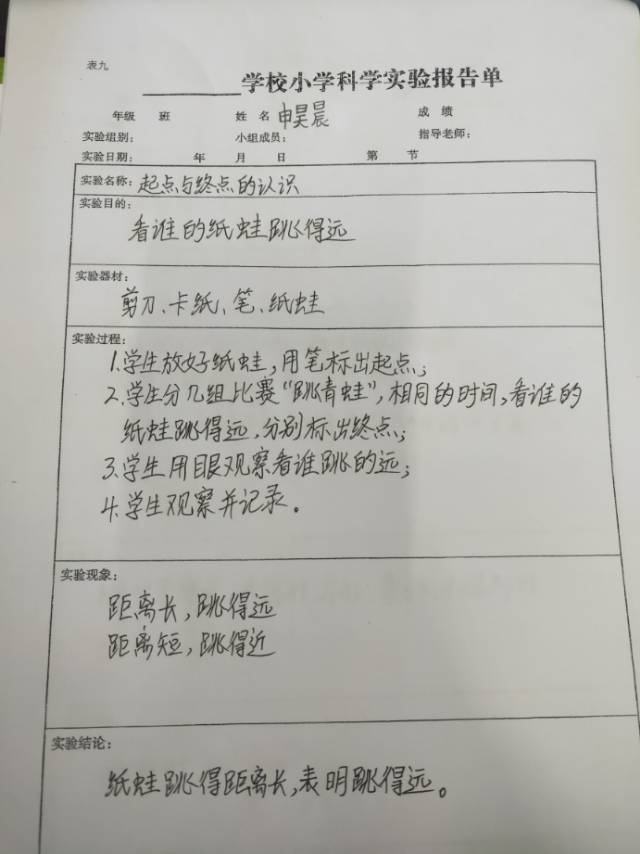 表九
________学校小学科学实验报告单
年级 班 姓名 申昊晨 成绩
实验组别： 小组成员： 指导老师：
实验日期： 年 月 日 第 节
实验名称：起点与终点的认识
实验目的：
看谁的纸蛙跳得远
实验器材：
剪刀、卡纸、笔、纸蛙
实验过程：
1.学生放好纸蛙，用笔标出起点；
2.学生分几组比赛“跳青蛙”，相同的时间，看谁的
纸蛙跳得远，分别标出终点；
3.学生用眼观察看谁跳的远；
4.学生观察并记录。
实验现象：
距离长，跳得远
距离短，跳得近
实验结论：
纸蛙跳得距离长，表明跳得远。